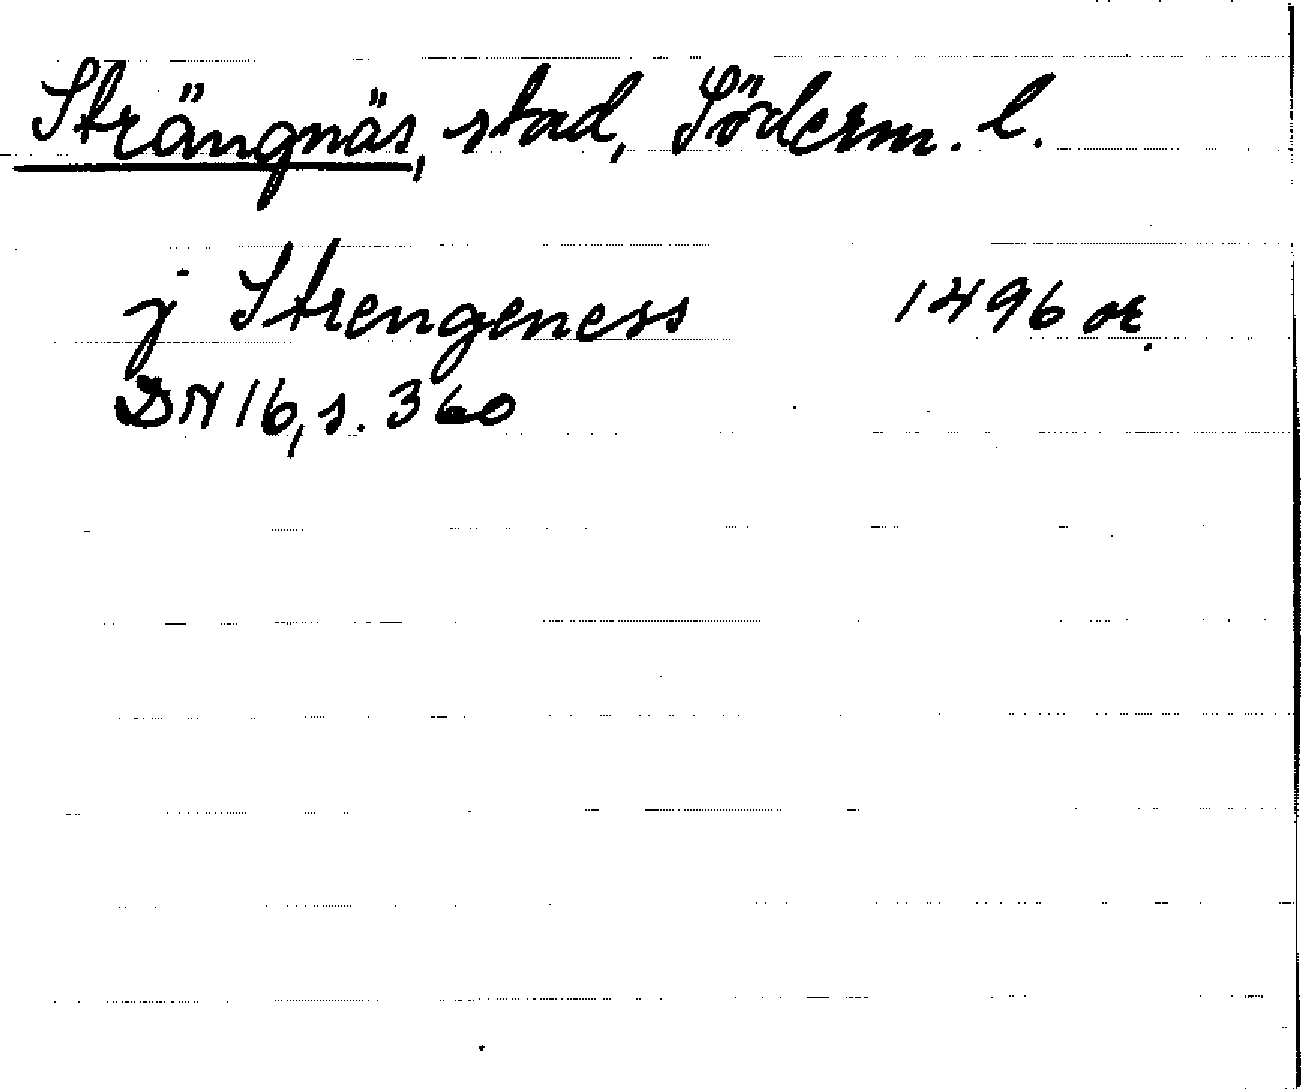 Strängnäs, stad, Söderm. l.
j Strengeness 1496 or.
DN 16, s. 360